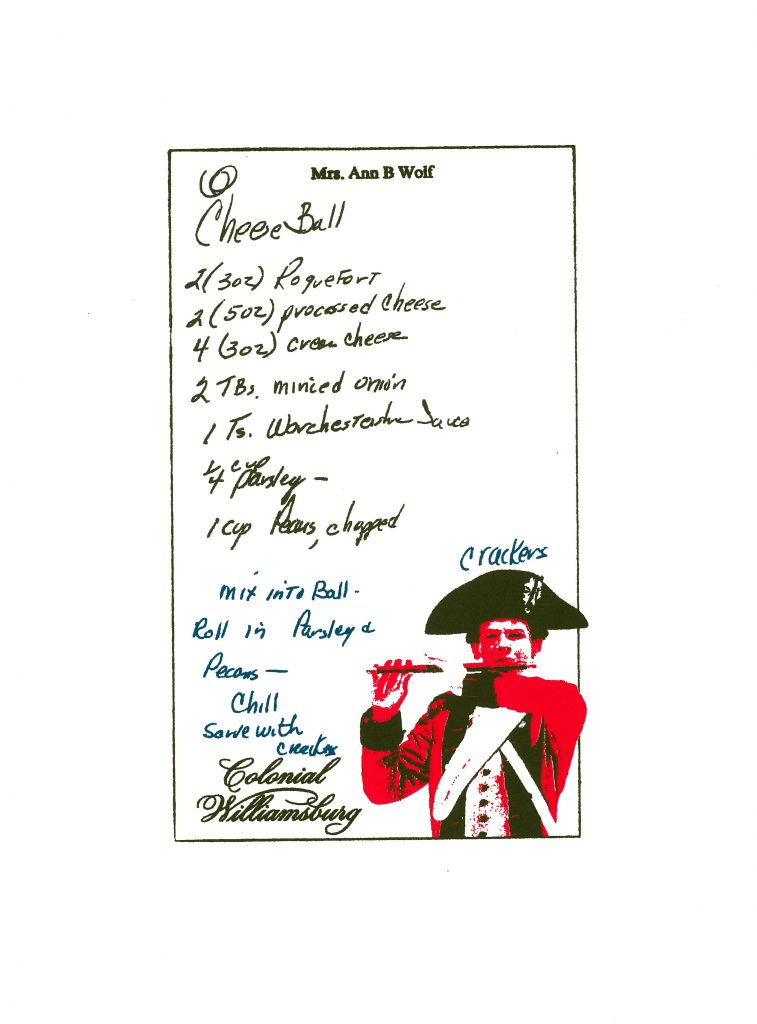 Mrs. Ann B Wolf
6
Cheese Ball
2 (3oz) Roquefort
2 (5oz) processed Cheese
4 (3oz) cream cheese
2 TBs. minced onion
1 Ts. Worchestershire Sauce
1/4 cup parsley —
1 cup Pecans, chopped
crackers
mix into Ball -
Roll in Parsley &
Pecans —
Chill
Serve with
crackers
Colonial
Williamsburg